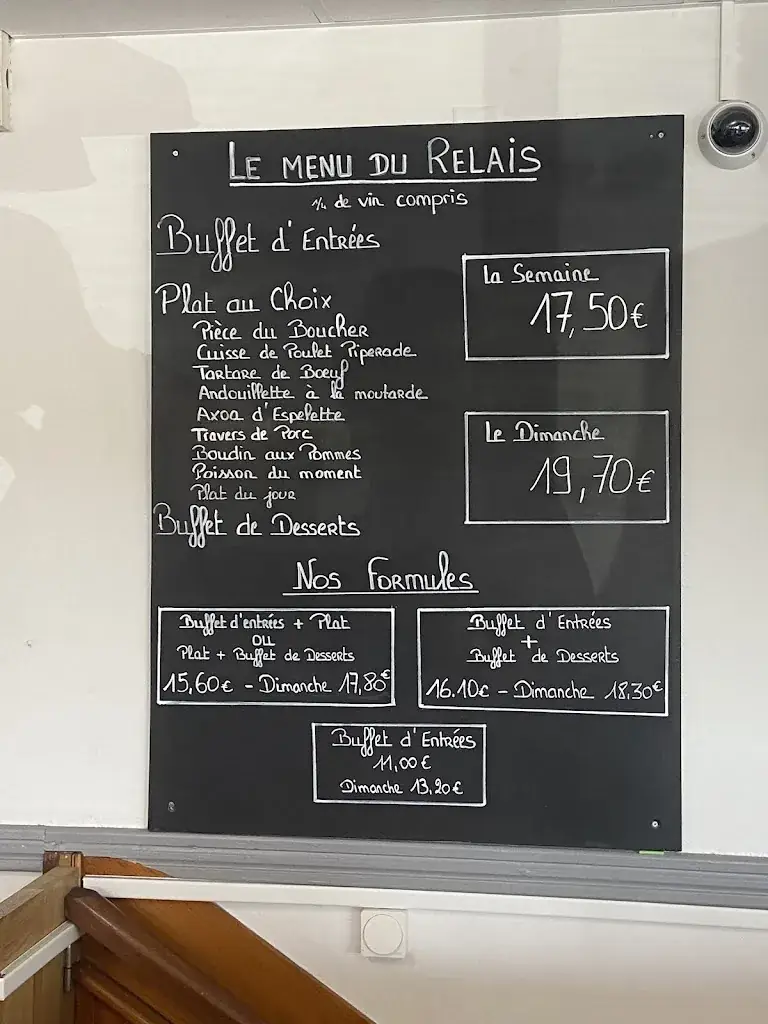 LE MENU DU RELAIS
1/4 de vin compris
Buffet d'Entrées
La Semaine
17,50€
Plat au Choix
Pièce du Boucher
Cuisse de Poulet Piperade
Tartare de Bœuf
Andouillette à la moutarde
Axoa d'Espelette
Travers de Porc
Boudin aux Pommes
Poisson du moment
Plat du jour
Le Dimanche
19,70€
Buffet de Desserts
Nos Formules
Buffet d'entrées + Plat
OU
Plat + Buffet de Desserts
15,60€ - Dimanche 17,80€
Buffet d'Entrées
+
Buffet de Desserts
16.10€ - Dimanche 18,30€
Buffet d'Entrées
11,00€
Dimanche 13,20€